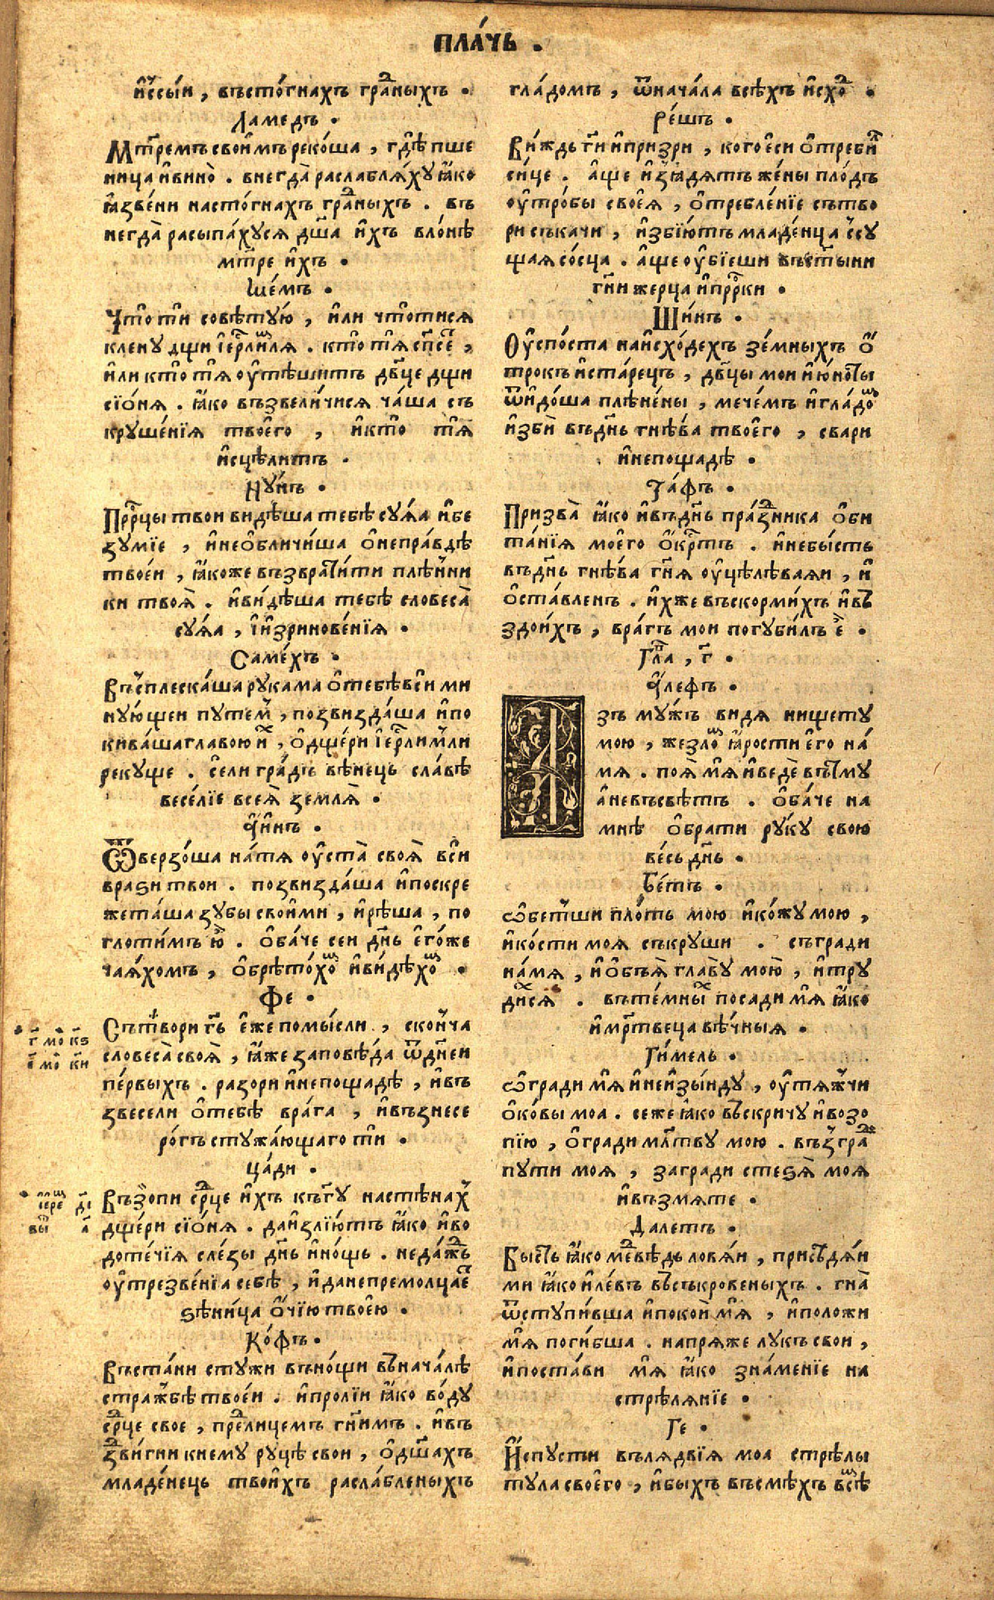 ПЛА́ЧЬ .
и҆́ссыи , въсто́гнахъ гра́ⷣныхъ .
Ламедъ .
Мт҃ремъ свои҆мъ реко́ша , гдѣ̀ пше
ница и҆вино̀ . внегда̀ раслаблѧ́хусѧ ꙗ҆́ко
ꙗ҆́звени настогнахъ гра́ⷣныхъ . въ
негда̀ расыпа́хусѧ дш҃а и҆́хъ вло́нѣ
мт҃ре и҆́хъ .
Ме́мъ .
Что̀ ти совѣ́тую , и҆́ли что̀тисѧ
клену дщи і҆ерⷭ҇ли́ⷨлѧ . кто̀ тѧ̀ сп҃се́ⷮ ,
и҆́ли кто̀ тѧ̀ оу҆тѣ́шитъ дв҃це дщи
сїо́нѧ . ꙗ҆́ко възвели́чисѧ ча́ша съ
круше́нїѧ твоего̀ , и҆кто̀ тѧ̀
и҆сцѣ́литъ .
Ну́нъ .
Прⷪ҇рцы твои ви́дѣша тебѣ̀ су́ꙗа и҆бе
зу́мїе , и҆неѡ҆бличи́ша ѡ҆непра́вдѣ
твое́и , ꙗ҆́коже възврати́ти плѣ́нни
ки твоѧ̀ . и҆ви́дѣша тебѣ̀ словеса̀
су́ꙗа , і҆изринове́нїѧ .
Саме́хъ .
Въсплеска́ша рукама ѡ҆тебѣ̀ вси́ ми
ну́ющеи путе́мъ , позвизда́ша и҆по
кива́ша главою и҆́ⷯ , ѡ҆дще́ри і҆ерⷭ҇ли́мли
рекуще . се́ли гра́дъ вѣне́ць сла́вѣ
весе́лїе всеѧ̀ землѧ̀ .
А҆́инъ .
Ѿверзо́ша на́тѧ оу҆ста̀ своѧ̀ вси́
врази твои . позвизда́ша и҆поскре
жета́ша зубы свои́ми , и҆рѣ́ша , по
глоти́мъ ю҆̀ . ѡ҆ба́че сеи дн҃ь е҆го́же
чаѧ́хомъ , ѡ҆брѣто́хоⷨ и҆ви́дѣхоⷨ .
Фе .
Сътвори гⷭ҇ь е҆́же помы́сли , сконча
словеса̀ своѧ̀ , ꙗ҆́же заповѣ́да ѿдне́и
пе́рвыхъ . разори и҆непощадѣ̀ , и҆въ
звесели ѡ҆тебѣ̀ врага̀ , и҆възнесе
ро́гъ стужа́ющаго ти̂ .
Ца́ди .
Възопи срⷣце и҆́хъ къгⷭ҇у настѣна́ⷯ
дще́ри сїо́нѧ . даи҆злїю́тъ ꙗ҆́ко и҆во
доте́чїѧ сле́зы дн҃ь и҆но́щь . неда́ⷤдь
оу҆трезве́нїа себѣ̀ , и҆данепремолца́еⷮ
зѣни́ца о҆чїю твое́ю .
Ко́фъ .
Въста́ни стужи въно́щи въ нача́лѣ
стра́жбѣ твое́и . и҆пролїи ꙗ҆́ко во́ду
срⷣце свое , преⷣлицемъ гн҃имъ . и҆въ
зⷣвигни кнему ру́цѣ свои , ѡ҆дш҃ахъ
младе́нець твои́хъ раслабленыхъ
г҃ мо́ кѕ҃
е҃ мо́ ки҃
і҆ереⷨ ді҃
вы а҃
гла́домъ , ѿнача́ла всѣ́хъ и҆схоⷣ .
Ре́шъ .
Ви́ждь гⷭ҇и и҆призри , кого е҆си ѡ҆треби́лъ
си́це . а҆́ще и҆зꙗдѧ́тъ же́ны пло́дъ
оу҆тро́бы свое́ѧ , ѡ҆требле́нїе сътво
ри съкачи , и҆збїю́тъ младе́нца ссу
щаѧ со́сца . а҆́ще оу҆бїеши въст҃ыни
гн҃и жерца и҆прⷪ҇рки .
Ши́нъ .
Оу҆спо́ста наи҆схо́дехъ зе́мныхъ ѡ҆́
трокъ и҆ста́рецъ , дв҃цы мои и҆ю́ноты
ѿи҆до́ша плѣне́ны , мече́мъ и҆гла́доⷨ
и҆зби́ въдн҃ь гнѣ́ва твоего̀ , свари
и҆непощадѣ̀ .
Та́фъ .
Призва̀ ꙗ҆́ко и҆въдн҃ь пра́зⷣника ѡ҆би
та́нїѧ моего̀ ѡ҆́крⷭ҇тъ . и҆небы́сть
въдн҃ь гнѣ́ва гн҃ѧ оу҆цѣлѣ́ваѧи , и҆
ѡ҆ста́вленъ . и҆́хже въскорми́хъ и҆въ
здои́хъ , вра́гъ мои погуби́лъ е҆̀ .
Гла́ , г҃ .
А҆́лефъ .
Азъ му́жъ видѧ нищету
мою , же́злоⷨ ꙗ҆́рости е҆го на́
мѧ . поѧ́ мѧ̀ и҆ведѐ вътму
а҆невъсвѣ́тъ . ѡ҆ба́че на
мнѣ̀ ѡ҆брати ру́ку свою
ве́сь дн҃ь .
Бе́тъ .
Ѡ҆бетши пло́ть мою и҆ко́жу мою ,
и҆ко́сти моѧ съкруши . съгради
на́мѧ , и҆ѡ҆бъѧ̀ главу мою̀ , и҆тру
ди́сѧ . вътемныⷯ посади мѧ̀ ꙗ҆́ко
и҆мр҃твеца вѣ́чныѧ .
Ги́мель .
Ѡ҆гради мѧ̀ и҆неи҆зы́нду , оу҆тѧжчи
ѡ҆ко́вы моа . сеже ꙗ҆́ко въскричу и҆возо
пїю , ѡ҆гради мл҃тву мою . възграⷣ
пути моѧ , загради стезѧ̀ моѧ
и҆възмѧте .
Далетъ .
Бы́сть ꙗ҆́ко меⷣвѣдь ловѧи , присѣдѧи
ми ꙗ҆́ко и҆ле́въ въсъкровеныхъ . гна̀
ѿступи́вша и҆поко́и мѧ̀ , и҆положи
мѧ̀ поги́бша . напрѧже лукъ свои ,
и҆поста́ви мѧ̀ ꙗ҆́ко зна́менїе на
стрѣ́лѧнїе .
Ге .
И҆спусти вълѧ́двїѧ моа стрѣ́лы
ту́ла своего̀ , и҆быхъ въсмѣ́хъ всѣ́ⷨ